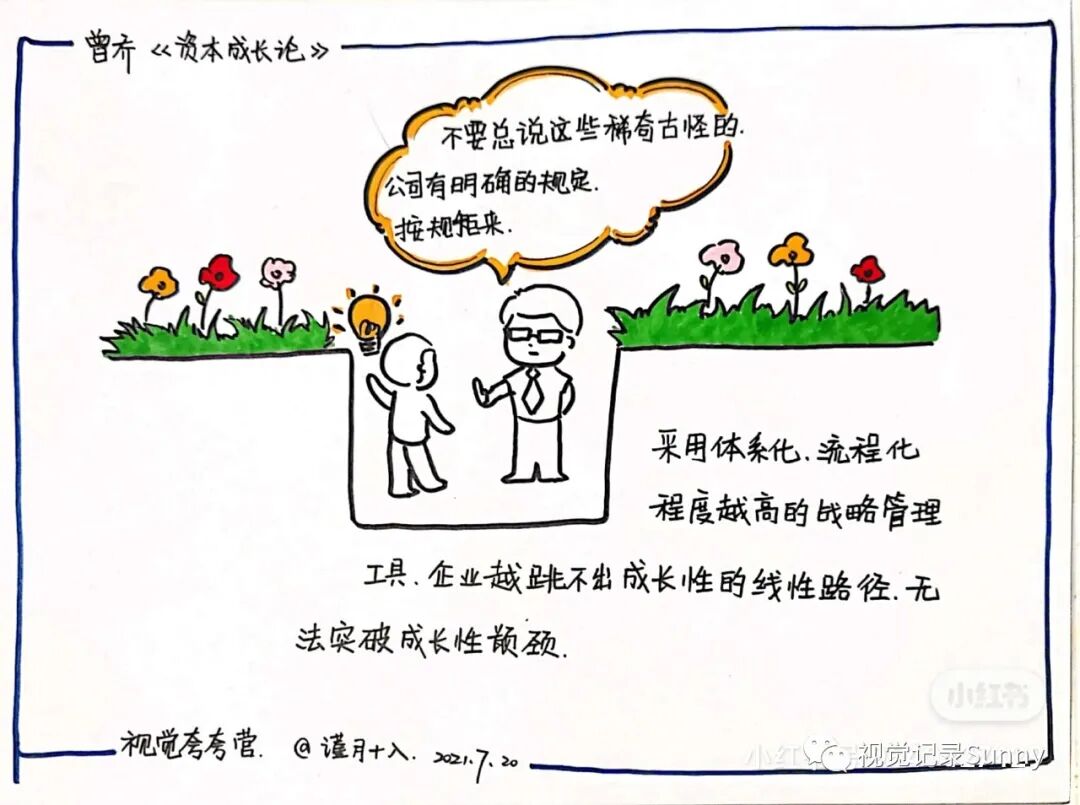 曾乔《资本成长论》
不要总说这些稀奇古怪的.
公司有明确的规定.
按规矩来.
采用体系化、流程化
程度越高的战略管理
工具、企业越跳不出成长性的线性路径、无
法突破成长性颈.
视觉夸夸营. @谨月十入. 2021.7.20
小红书
视觉记录Sunny